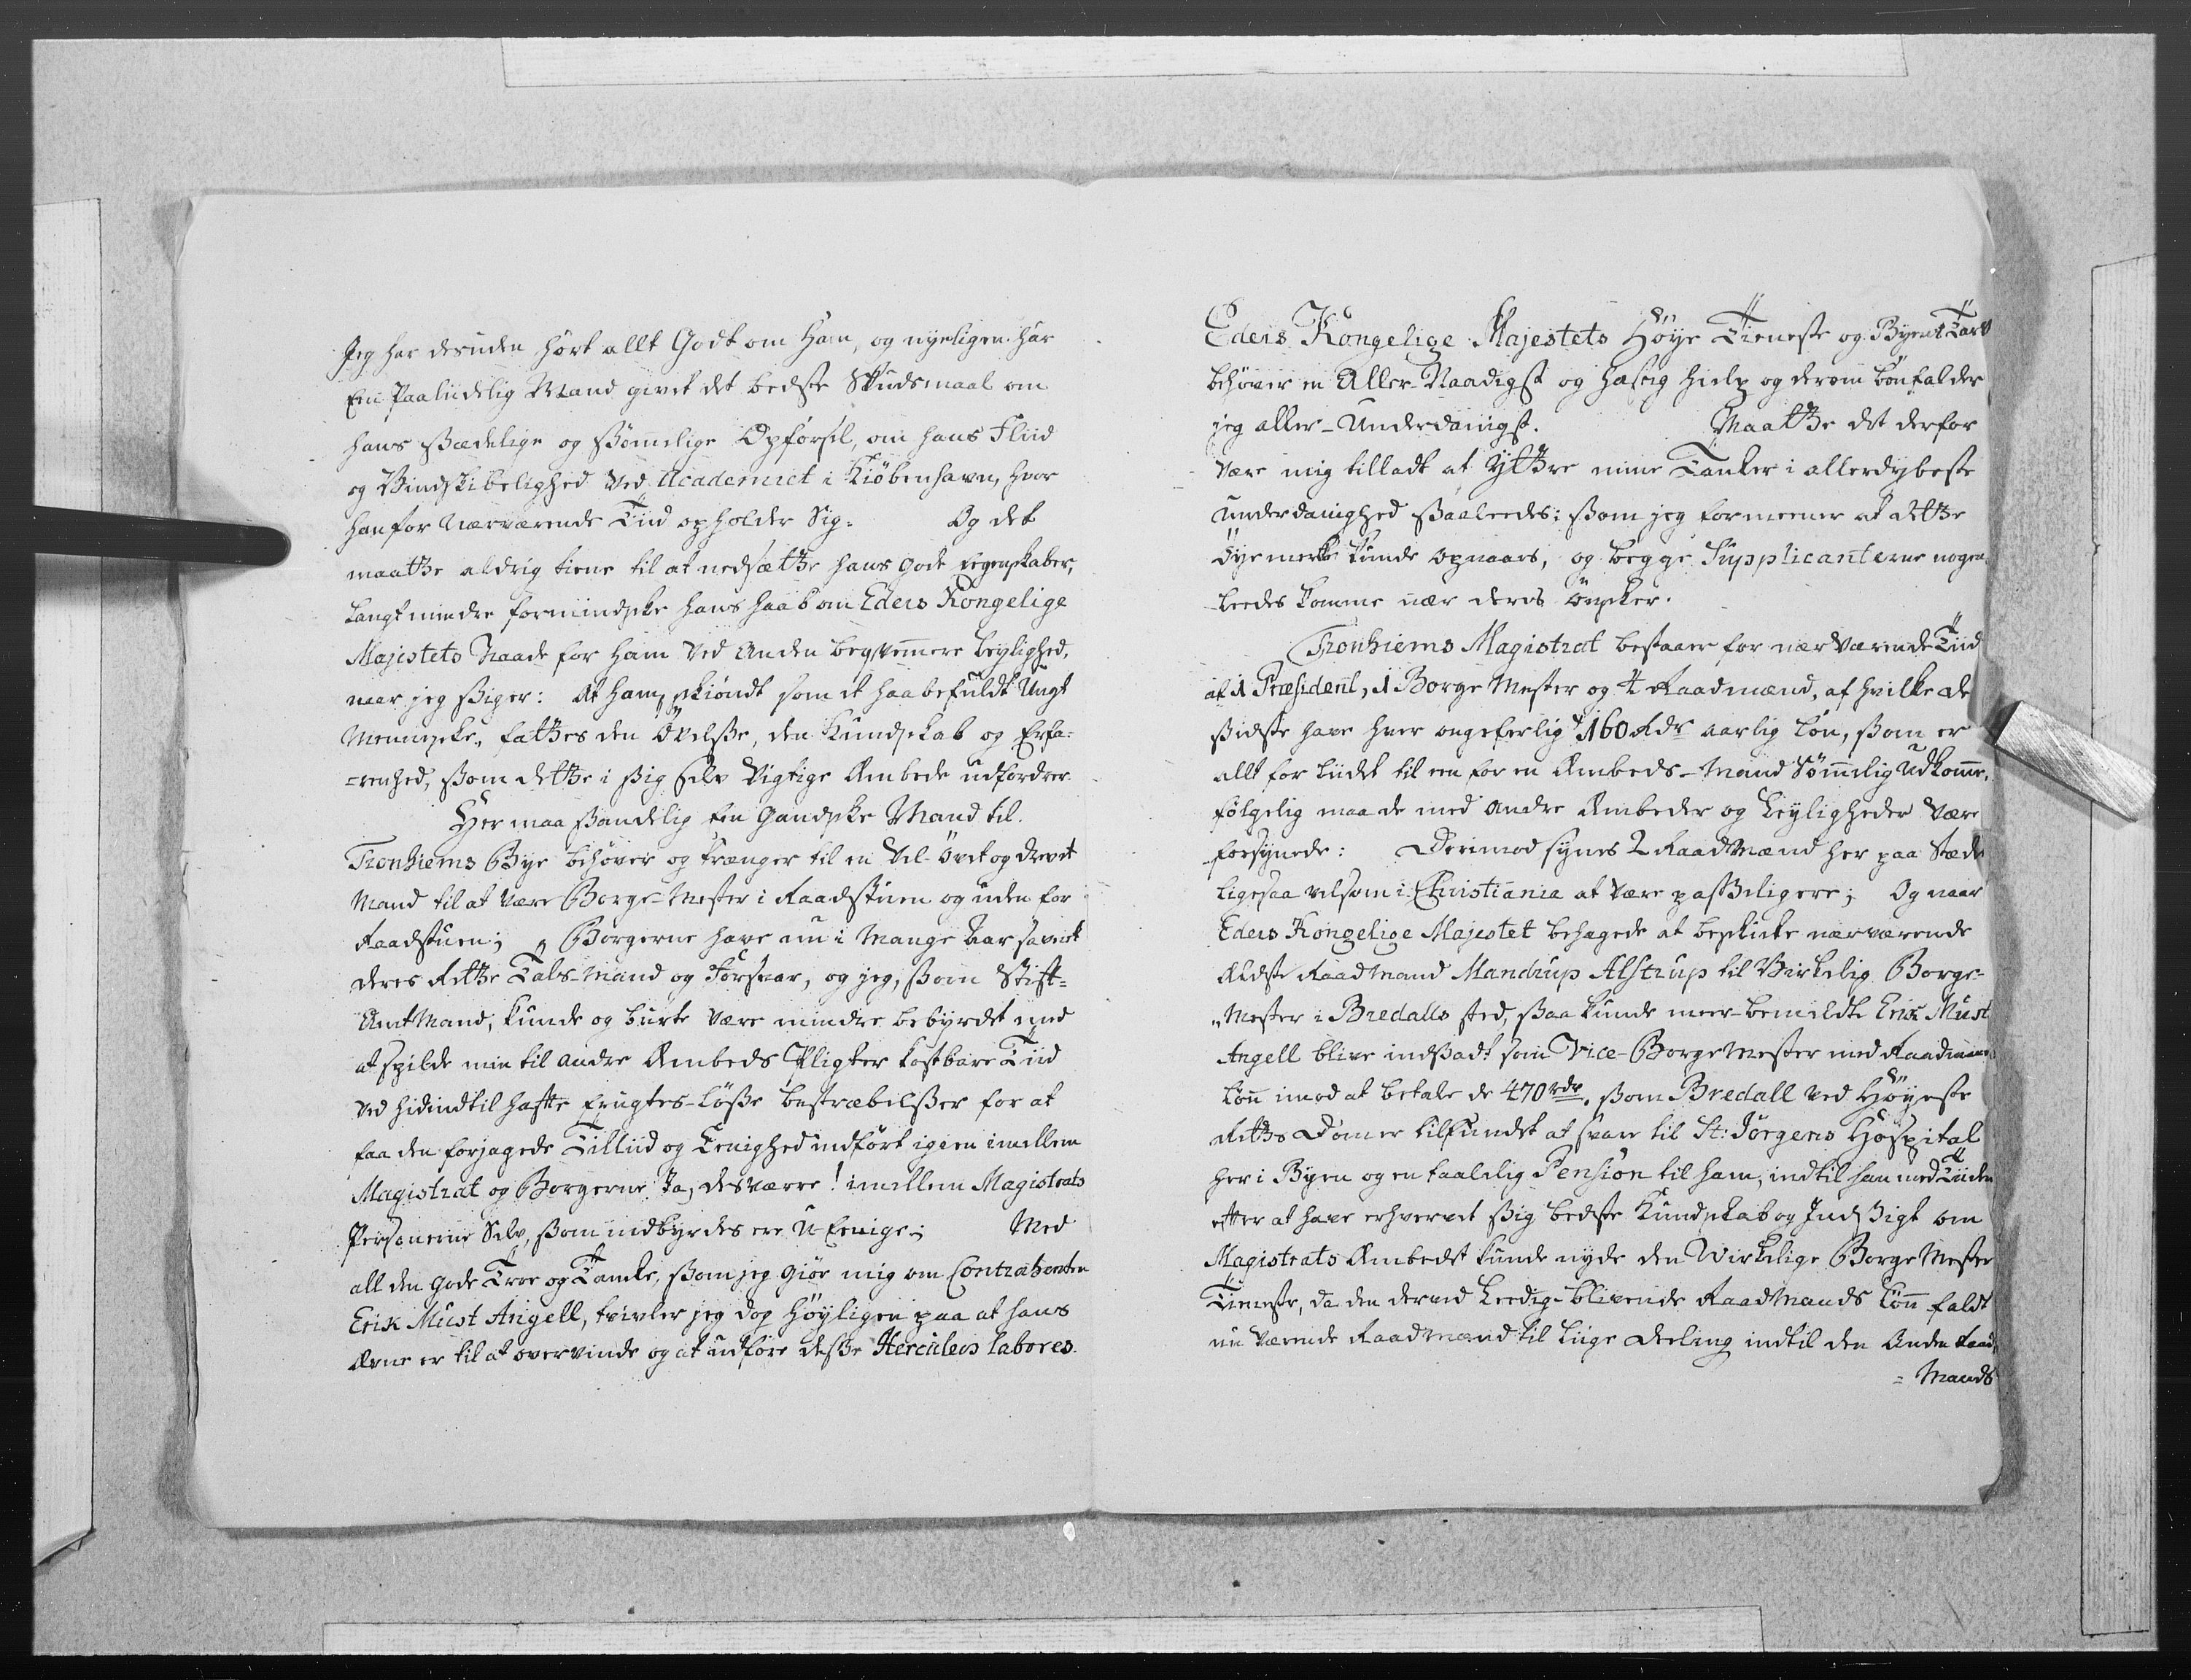 Jeg har desuden hört allt Godt om Ham, og nyeligen har
Een Paalidelig Mand givet det bedste Skudsmaal om
hans sædelige og sömmelige Opförsel, om hans Fliid
og Vindskibelighed ved Academiet i Kiöbenhavn, hvor
han for Nærværende Tiid opholder Sig. Og det
maatte aldrig tiene til at nedsætte hans gode Egenskaber,
langt mindre formindske hans haab om Eders Kongelige
Majestets Naade for Ham ved Anden beqvemmere leylighed,
naar jeg siger: At ham, skiöndt som et haabefuldt Ungt
Menniske, fattes den Övelse, den Kundskab og Erfa-
-renhed, som dette i sig selv Vigtige Embede udfordrer.
Her maa sandelig Een Gandske Mand til.
Tronhiems Bye behöver og trænger til en Vel-Övet og drevet
Mand til at være Borge-Mester i Raadstuen og uden for
Raadstuen; Borgerne have nu i Mange Aar savnet
deres Rette Tals-Mand og Forsvar, og jeg, som Stift-
AmtMand, kunde og burte være mindre bebyrdet med
at spilde min til andre Embeds Pligter kostbare Tiid
ved hidindtil hafte Frugtes-Löse bestræbelser for at
faa den forjagede Tilliid og Eenighed indfört igien imellem
Magistrat og Borgerne Ja, desværre! imellem Magistrats
Personerne Selv, som indbyrdes ere U-Eenige; Med
all den gode Troe og Tanke, som jeg giör mig om Contrahenten
Erik Must Angell, tvivler jeg dog Höyligen paa at hans
Evne er til at overvinde og at udföre disse Herculeos labores.
Eders Kongelige Majestets Höye Tieneste og Byens Tarv
behöver en Aller-Naadigst og hastig hielp og derom bönfalder
jeg aller-Underdanigst. Maatte det derfor
være mig tilladt at Yttre mine Tanker i allerdybeste
underdanighed saaleedes; som jeg formeener at dette
Öyemerke kunde opnaaes, og begge Supplicanterne nogen-
leedes komme nær deres Önsker.
Tronhiems Magistrat bestaaer for nær værende Tiid
af 1 Præsident, 1 Borge Mester og 4 Raadmænd, af hvilke de
sidste have hver ongefærlig 160 Rdr aarlig Lön, som er
allt for lidet til een for en Embeds-Mand Sömmelig Udkomme,
fölgelig maa de med andre Embeder og Leyligheder være
forsynede: Derimod synes 2 RaadMænd her paa Stædet
ligesaa vel som i Christiania at være passeligere; Og naar
Eders Kongelige Majestet behagede at beskicke nærværende
Ældste RaadMand Mandrup Alstrup til Virkelig Borge-
-Mester i Bredalls sted, saa kunde meer-bemeldte Erik Must
Angell blive indsadt som Vice-BorgeMester med Raadmands
Lön imod at betale de 470 rdr, som Bredall ved Höyeste
Retts Dom er tilfundet at svare til St: Jörgens Hospital
her i Byen og en taalelig Pension til ham, indtil han med Tiiden
efter at have erhvervet sig bedste Kundskab og Indsigt om
Magistrats Embedet kunde nyde den Wirkelige BorgeMester
Tieneste, da den derved Leedig-blivende RaadMands Lön faldt
nu værende RaadMænd til liige Deeling indtil den Anden Raad-
= Mands